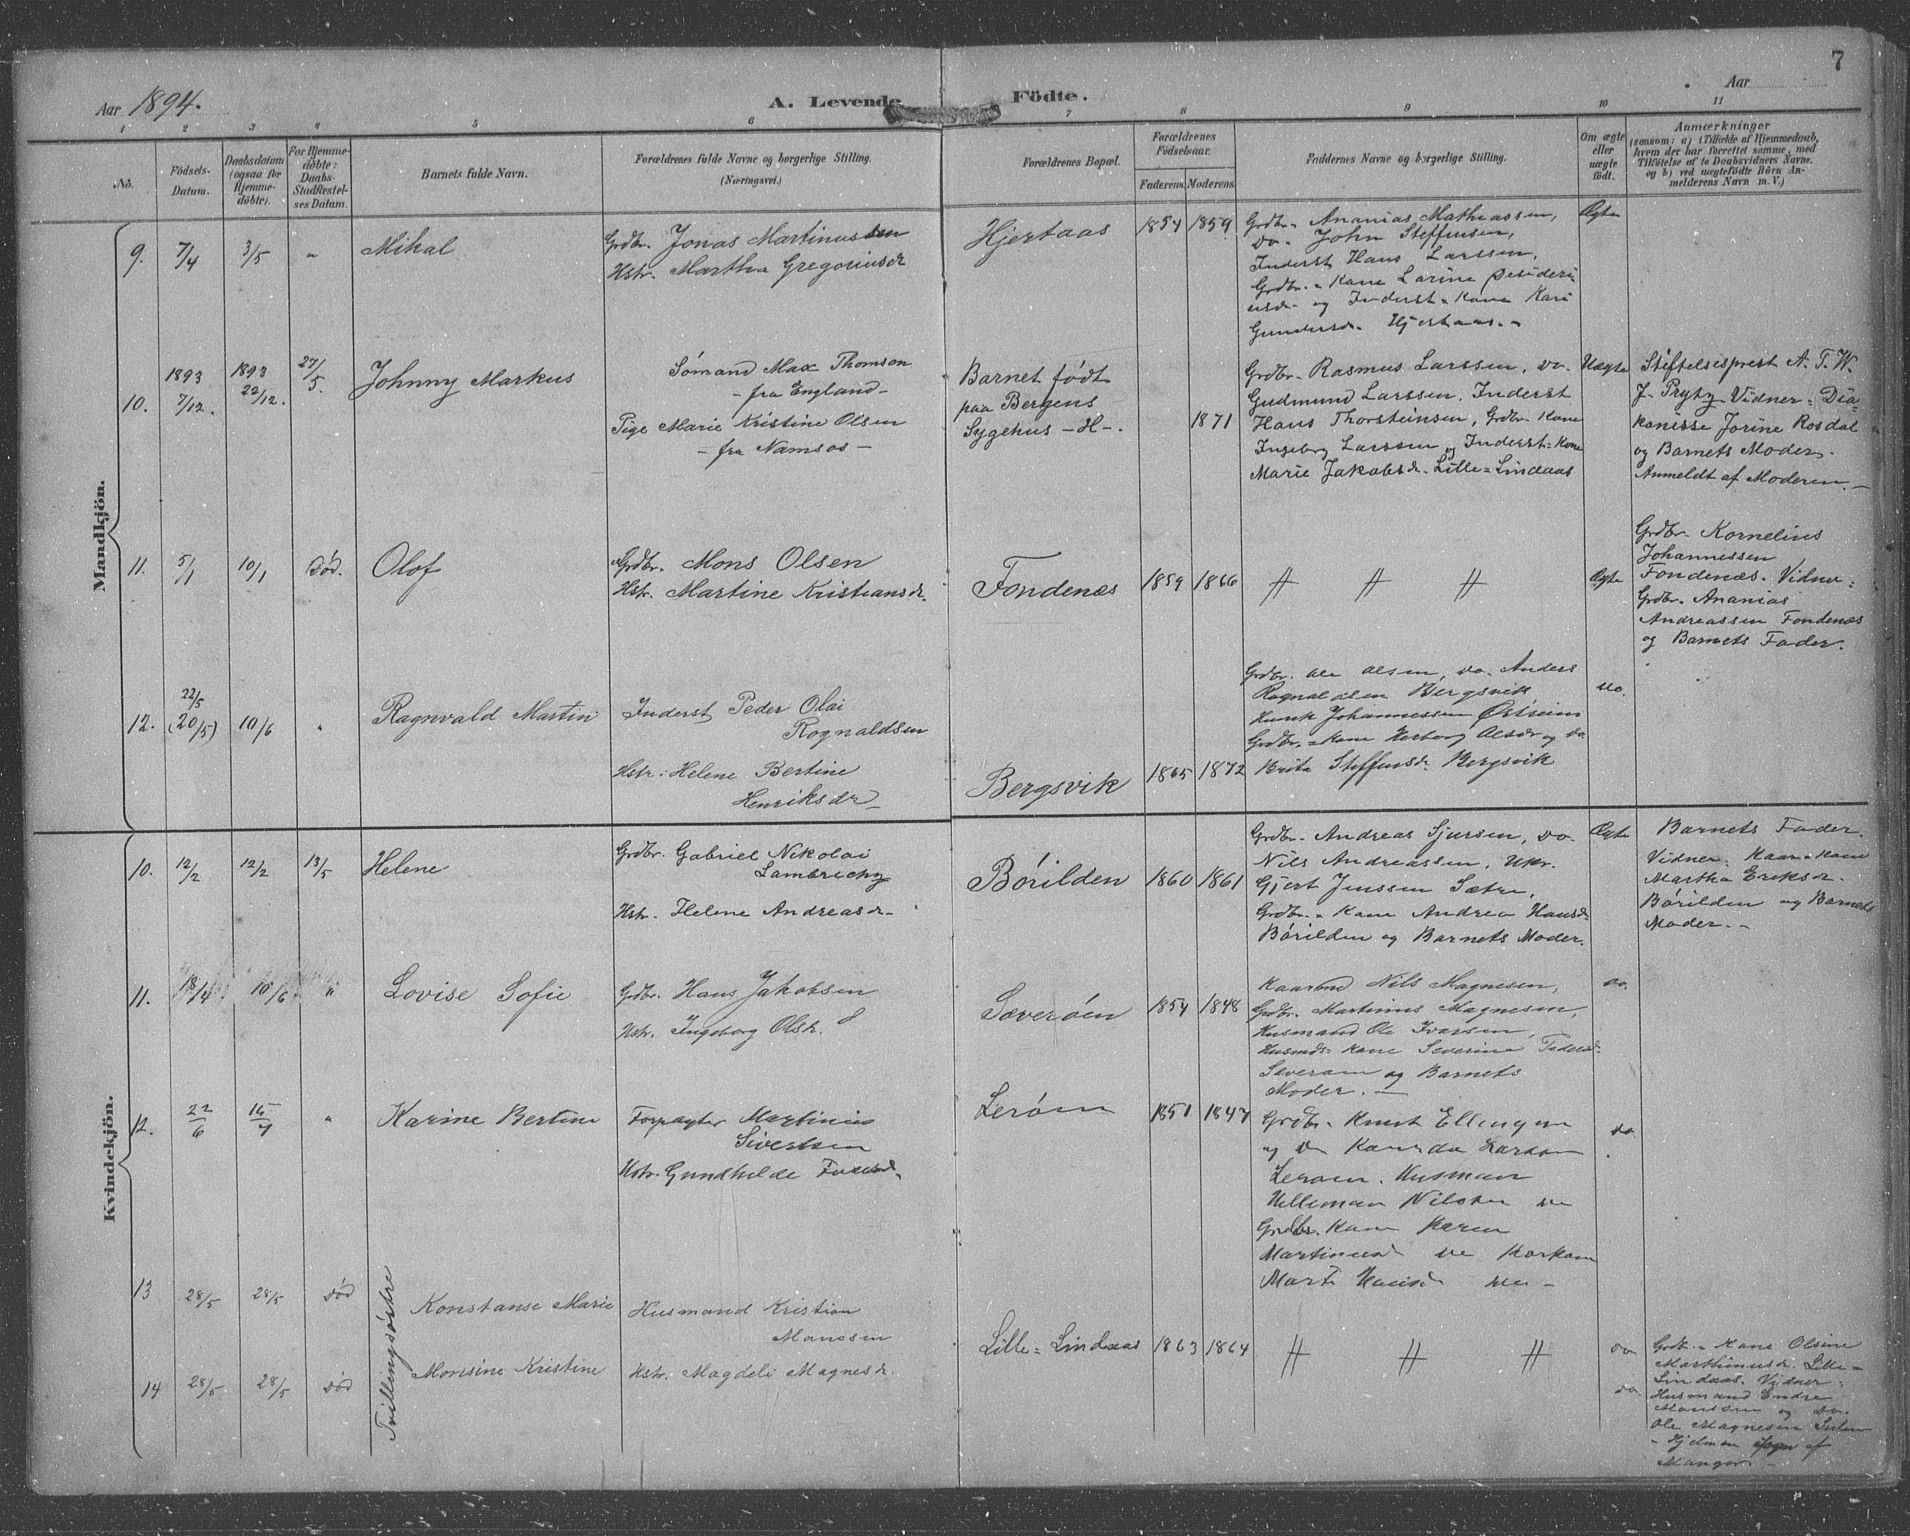 7
Aar 1894.
A. Levende Födte.
Aar
1 2 3 4 5 6 7 8 9 10 11
No.
Födsels-Datum.
Daabsdatum (ogsaa for Hjemme-döbte).
For Hjemme-döbte: Daabs-Stadfæstel-ses Datum.
Barnets fulde Navn.
Forældrenes fulde Navne og borgerlige Stilling.
(Næringsvei.)
Forældrenes Bopæl.
Forældrenes Födselsaar.
Faderens. Moderens.
Faddernes Navne og borgerlige Stilling.
Om ægte eller uægte födt.
Anmærkninger
(saasom: a) i Tilfælde af Hjemmedaab,
hvem der har forrettet samme, med
Tilföielse af to Daabsvidners Navne.
og b) ved uægtefödte Börn An-
melderens Navn m. V.)
Mandkjön.
9. 7/4 3/5 " Mikal
Grdbr. Jonas Martinussen
Hstr. Martha Gregoriusdr
Hjertaas 1854 1859
Grdbr. Ananias Mathiassen,
Do. John Steffensen,
Inderst Hans Larssen,
Grdbr.-Kone Larine Desideri
usdr. og Inderst-Kone Kari
Gundersdr. Hjertaas.-
Ægte
10. 1893 7/12. 1893 29/12. 27/5. Johnny Markus
Sömand Max Thomson
- fra England -
Pige Marie Kristine Olsen
- fra Namsos -
Barnet født
paa Bergens
Sygehus -H-.
1871
Grdbr. Rasmus Larssen, Do.
Gudmund Larssen, Inderst
Hans Thorsteinsen, Grdbr-Kone
Ingeborg Larssen og Inderst-Kone
Marie Jakobsdr. Lille-Lindaas
Uægte
Stiftelsesprest A. T. W.
J. Prytz. Vidner: Dia-
konisse Jorine Rosdal
og Barnets Moder.
Anmeldt af Moderen.-
11. 5/1 10/1 Død. Olof
Grdbr. Mons Olsen
Hstr. Martine Kristiansdr.
Fondenæs 1859 1866
〃 〃 〃
Ægte
Grdbr. Kornelius
Johannessen
Fondenæs. Vidner:
Grdbr. Ananias
Andreassen Fondenæs
og Barnets Fader.
12. 22/5 (20/5) 10/6 " Ragnvald Martin
Inderst Peder Olai
Rognaldsen
Hstr: Helene Bertine
Henriksdr
Bergsvik 1865 1872
Grdbr. Ole Olsen, Do. Anders
Bergsvik
Henrik Johannessen
Grdbr.-Kone Herborg Olsdr og Do
Brite Steffensdr. Bergsvik
Do.
Kvindekjön.
10. 12/2 12/2 13/5 Helene
Grdbr. Gabriel Nikolai
Lambrechts
Hstr. Helene Andreasdr.
Börilden 1860 1861
Grdbr. Andreas Sjursen, Do.
Nils Andreassen, Ukr.
Gjert Jenssen Sætre,
Grdbr.-Kone Andrea Hansdr
Börilden og Barnets Moder.
Ægte
Barnets Fader.
Vidner: Kaar-Kone
Martha Eriksdr.
Börilden og Barnets
Moder.-
11. 18/4 10/6 " Lovise Sofie
Grdbr. Hans Jakobsen
Hstr. Ingeborg Olsdr.
Sæveröen 1854 1848
Kaarmd Nils Magnesen,
Grdbr. Martinus Magnesen,
Husmand Ole Ivarsen,
Husmds-Kone Severine
og Barnets
Moder.-
Do.
12. 22/6 15/7 " Karine Bertine
Forpagter Martinus
Sivertsen
Hstr. Gundhilde
Leröen 1851 1847
Grdbr. Knut Ellingsen
og Do Larsen
Leröen. Husman
Nilsen
Grdbr. Kone Karen
Martinusdr
Do.
13 28/5 28/5 Død Konstanse Marie
Tvillingsöstre
Husmand Kristian
Monssen
14 28/5 28/5 Død Monsine Kristine
Hstr. Magdeli Magnesdr.
Lille-Lindaas 1863 1864
〃 〃 〃
Do
Do.
Grdb.-Kone Olsine
Marthinusdr. Lille-
Lindaas. Vidner:
Husmand Endre
Monssen og Do.
Ole Magnesen
Hjelmen af
Manger.-